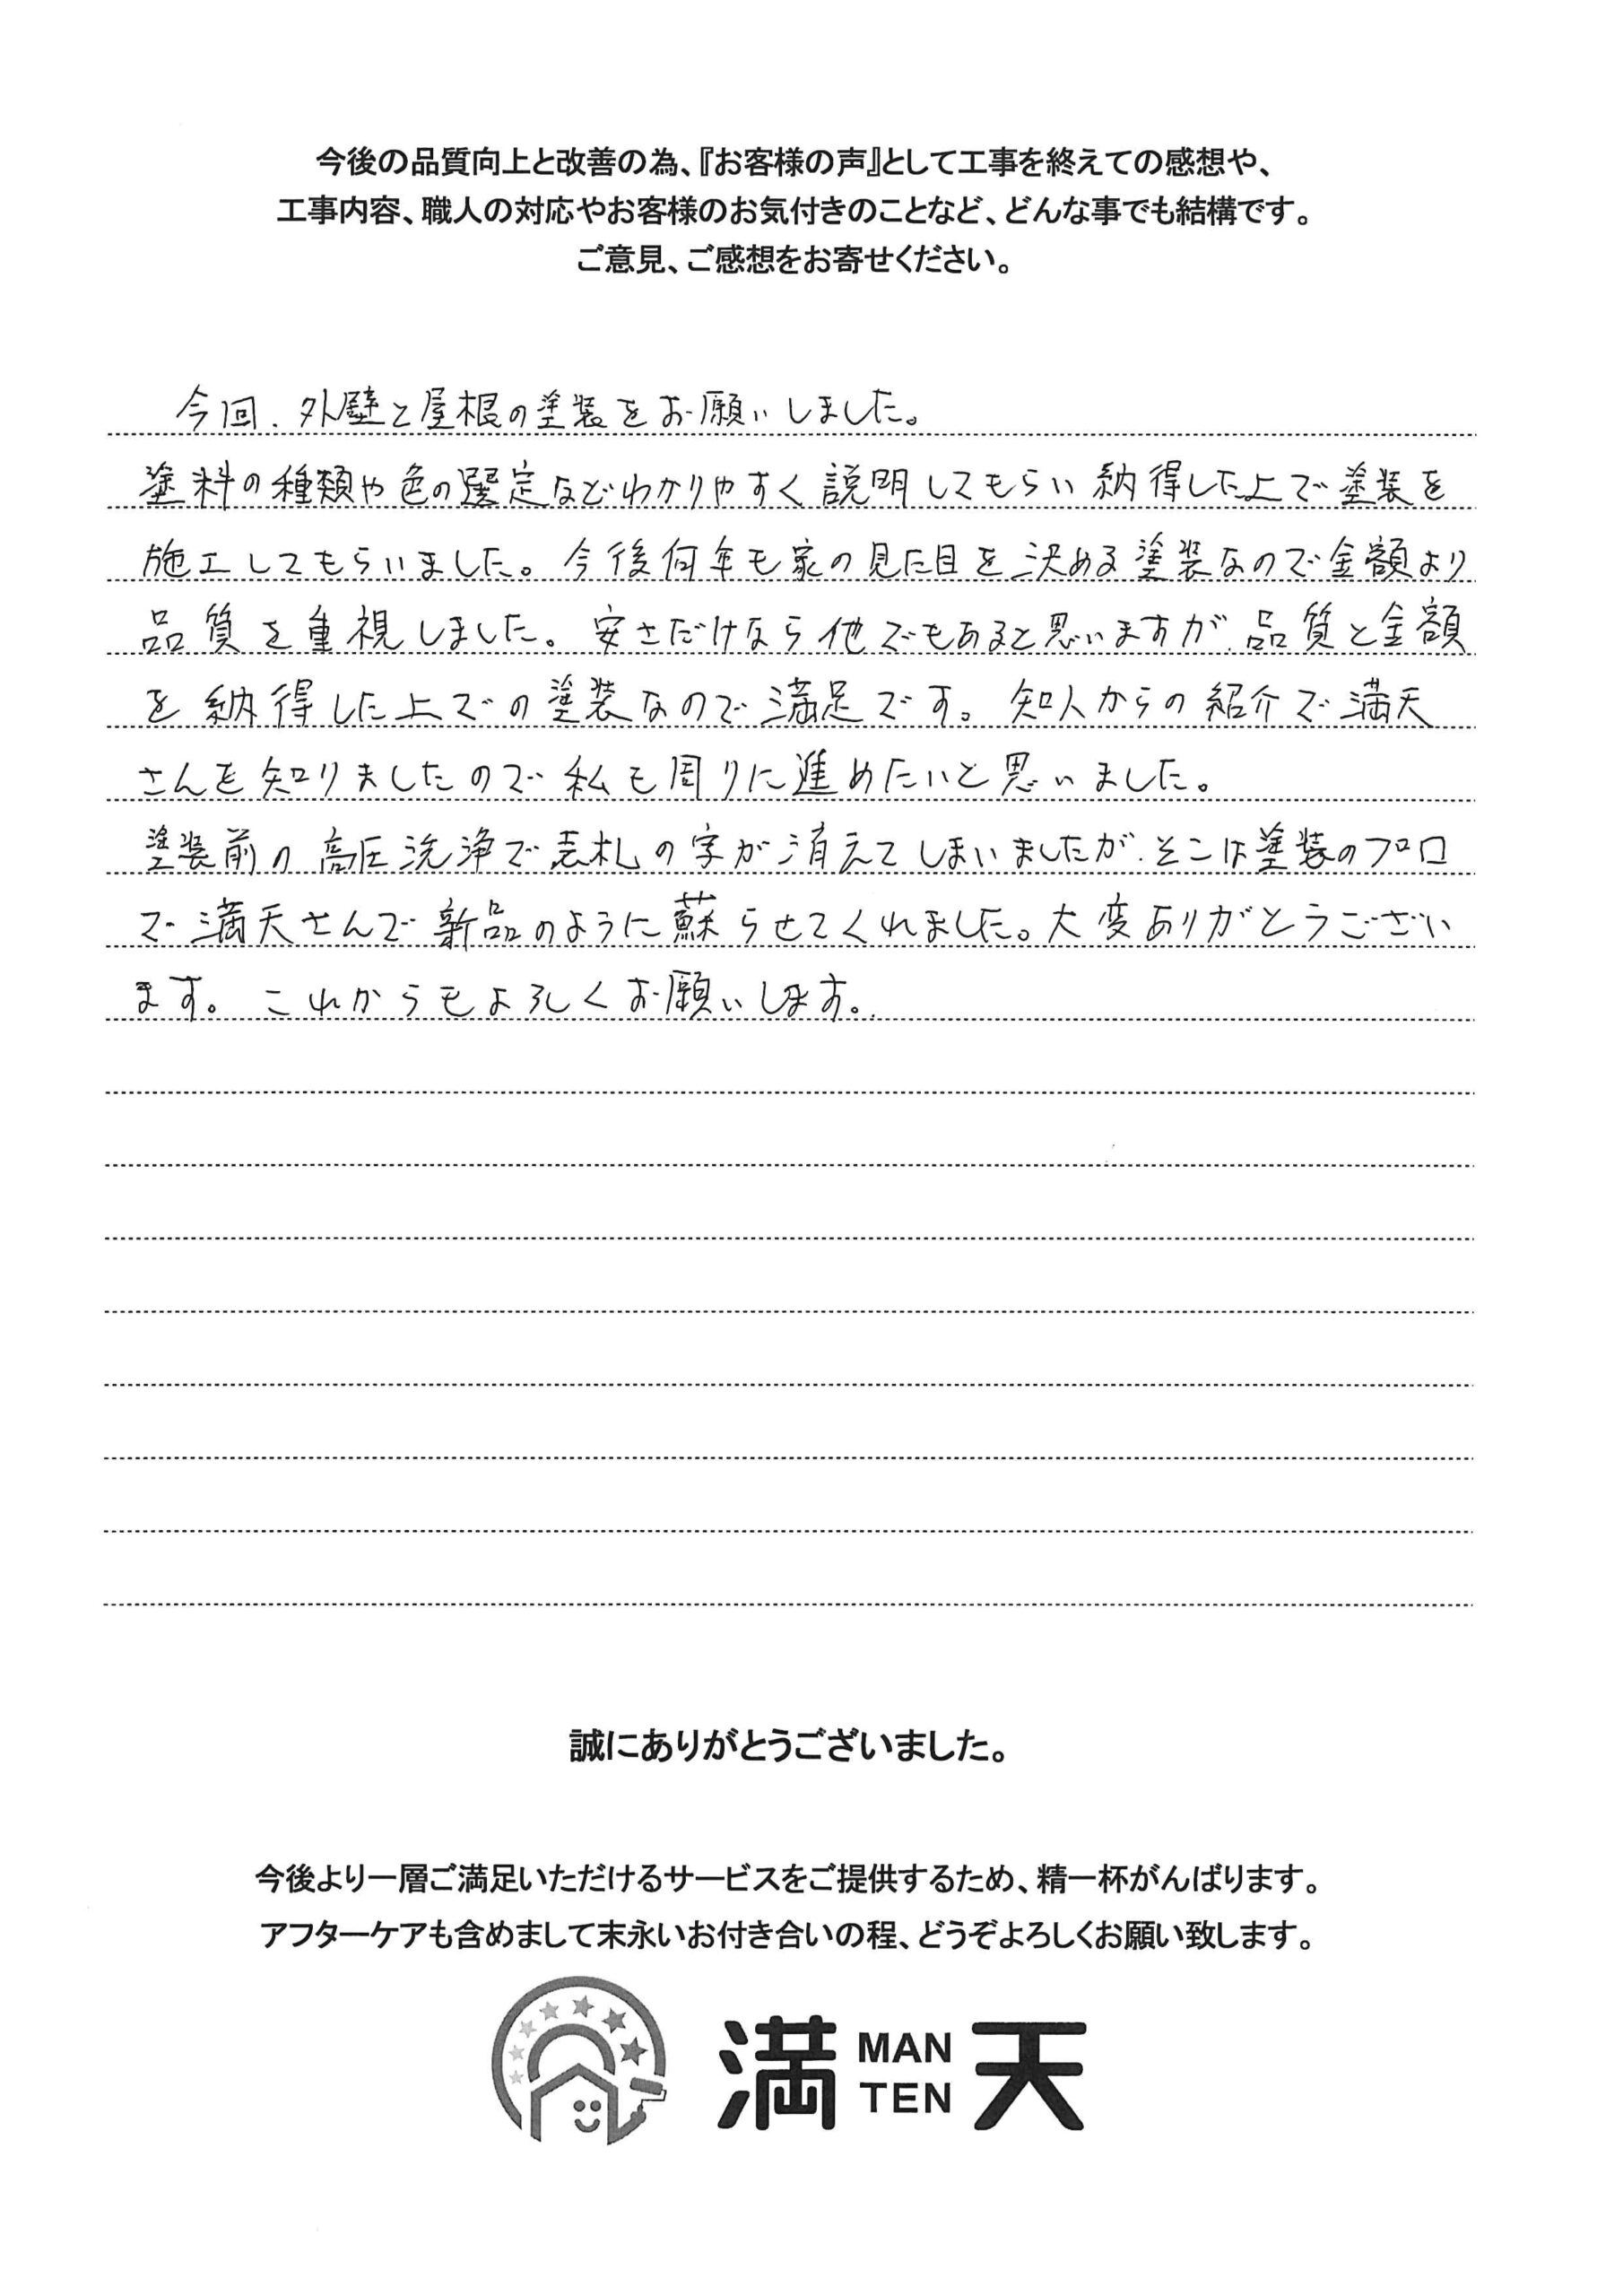 今後の品質向上と改善の為、『お客様の声』として工事を終えての感想や、
工事内容、職人の対応やお客様のお気付きのことなど、どんな事でも結構です。
ご意見、ご感想をお寄せください。
今回、外壁と屋根の塗装をお願いしました。
塗料の種類や色の選定などわかりやすく説明してもらい納得した上で塗装を
施工してもらいました。今後何年も家の見た目を決める塗装なので金額より
品質を重視しました。安さだけなら他でもあると思いますが、品質と金額
を納得した上での塗装なので満足です。知人からの紹介で満天
さんを知りましたので私も周りに進めたいと思いました。
塗装前の高圧洗浄で表札の字が消えてしまいましたが、そこは塗装のプロ
で満天さんで新品のように蘇らせてくれました。大変ありがとうござい
ます。これからもよろしくお願いします。
誠にありがとうございました。
今後より一層ご満足いただけるサービスをご提供するため、精一杯がんばります。
アフターケアも含めまして末永いお付き合いの程、どうぞよろしくお願い致します。
満 MAN TEN 天